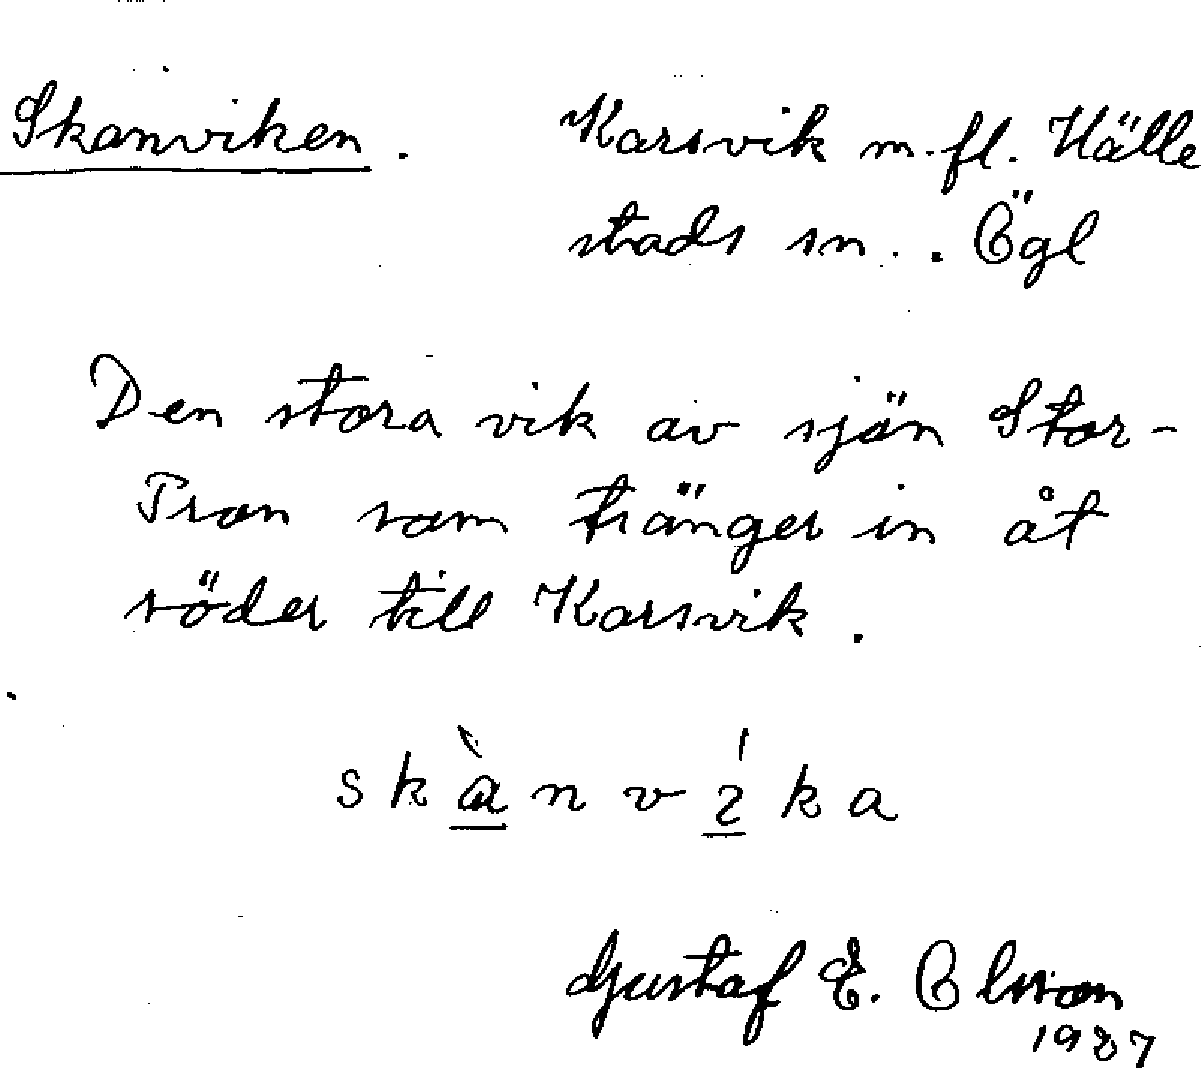 Skanviken. Karsvik m.fl. Hälle
stads sn. . Ögl
Den stora vik av sjön Stor-
Tron som tränger in åt
söder till Karsvik.
s k à n v í k a
Gustaf E. Olsson